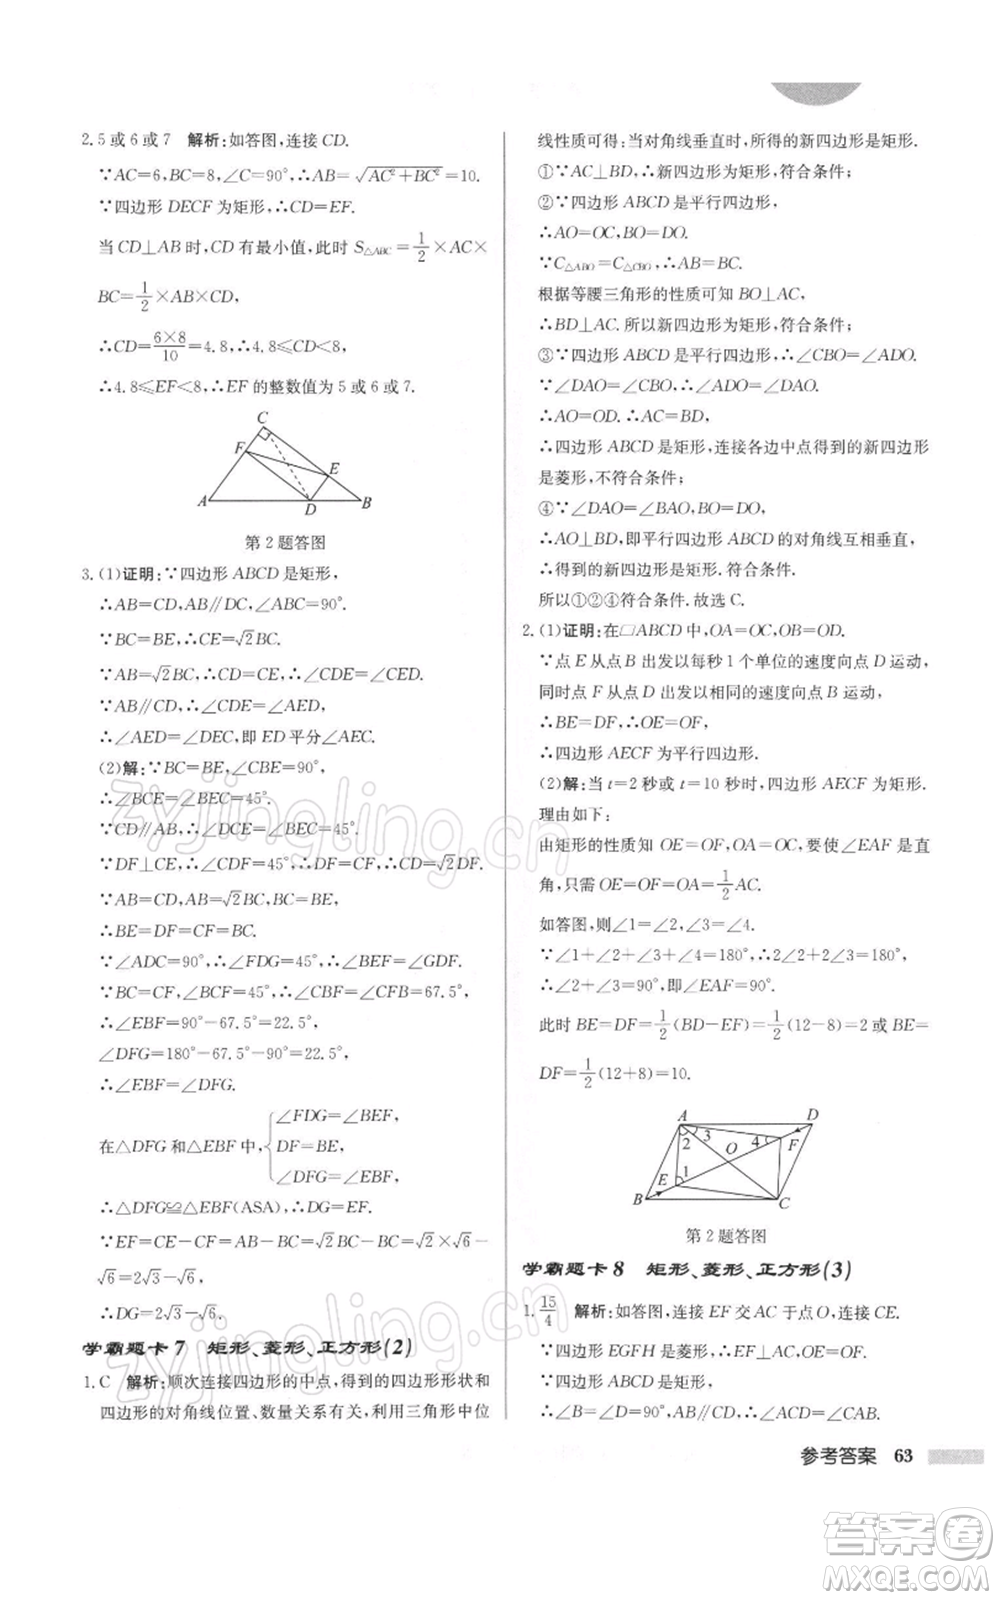 2.5 或 6 或 7　解析:如答图,连接 CD.
∵AC=6,BC=8,∠C=90°,∴AB=√(AC²+BC²)=10.
∵四边形 DECF 为矩形,∴CD=EF.
当 CD⊥AB 时,CD 有最小值,此时 S△ABC=1/2×AC×
BC=1/2×AB×CD,
∴CD=(6×8)/10=4.8,∴4.8≤CD<8,
∴4.8≤EF<8,∴EF 的整数值为 5 或 6 或 7.
C
F
E
A
D
B
第 2 题答图
3.(1)证明:∵四边形 ABCD 是矩形,
∴AB=CD,AB∥DC,∠ABC=90°.
∵BC=BE,∴CE=√2BC.
∵AB=√2BC,∴CE=CD,∴∠CDE=∠CED.
∵AB∥CD,∴∠CDE=∠AED,
∴∠AED=∠DEC,即 ED 平分∠AEC.
(2)解:∵BC=BE,∠CBE=90°,
∴∠BCE=∠BEC=45°.
∵CD∥AB,∴∠DCE=∠BEC=45°.
∵DF⊥CE,∴∠CDF=45°,∴DF=CF,∴CD=√2DF.
∵AB=CD,AB=√2BC,BE=BC,
∴BE=DF=CF=BC.
∵∠ADC=90°,∴∠FDG=45°,∴∠BEF=∠GDF.
∵BC=CF,∠BCF=45°,∴∠CBF=∠CFB=67.5°,
∴∠EBF=90°-67.5°=22.5°,
∠DFG=180°-67.5°-90°=22.5°,
∴∠EBF=∠DFG.
在△DFG 和△EBF 中,{∠FDG=∠BEF,
DF=BE,
∠DFG=∠EBF,
∴△DFG≌△EBF(ASA),∴DG=EF.
∵EF=CE-CF=AB-BC=√2BC-BC=√2×√6
-√6=2√3-√6,
∴DG=2√3-√6.
学霸题卡 7　矩形、菱形、正方形(2)
1.C　解析:顺次连接四边形的中点,得到的四边形形状和
四边形的对角线位置、数量关系有关,利用三角形中位
线性质可得:当对角线垂直时,所得的新四边形是矩形.
①∵AC⊥BD,∴新四边形为矩形,符合条件;
②∵四边形 ABCD 是平行四边形,
∴AO=OC,BO=DO.
∵C△ABO=C△CBO,∴AB=BC.
根据等腰三角形的性质可知 BO⊥AC,
∴BD⊥AC. 所以新四边形为矩形,符合条件;
③∵四边形 ABCD 是平行四边形,∴∠CBO=∠ADO.
∵∠DAO=∠CBO,∴∠ADO=∠DAO.
∴AO=OD. ∴AC=BD,
∴四边形 ABCD 是矩形,连接各边中点得到的新四边形
是菱形,不符合条件;
④∵∠DAO=∠BAO,BO=DO,
∴AO⊥BD,即平行四边形 ABCD 的对角线互相垂直,
∴得到的新四边形是矩形,符合条件.
所以①②④符合条件. 故选 C.
2.(1)证明:在▱ABCD 中,OA=OC,OB=OD.
∵点 E 从点 B 出发以每秒 1 个单位的速度向点 D 运动,
同时点 F 从点 D 出发以相同的速度向点 B 运动,
∴BE=DF,∴OE=OF,
∴四边形 AECF 为平行四边形.
(2)解:当 t=2 秒或 t=10 秒时,四边形 AECF 为矩形.
理由如下:
由矩形的性质知 OE=OF,OA=OC,要使∠EAF 是直
角,只需 OE=OF=OA=1/2AC.
如答图,则∠1=∠2,∠3=∠4.
∵∠1+∠2+∠3+∠4=180°,∴2∠2+2∠3=180°,
∴∠2+∠3=90°,即∠EAF=90°.
此时 BE=DF=1/2(BD-EF)=1/2(12-8)=2 或 BE=
DF=1/2(12+8)=10.
A
D
3
2
4
F
O
E
1
B
C
第 2 题答图
学霸题卡 8　矩形、菱形、正方形(3)
1.15/4　解析:如答图,连接 EF 交 AC 于点 O,连接 CE.
∵四边形 EGFH 是菱形,∴EF⊥AC,OE=OF.
∵四边形 ABCD 是矩形,
∴∠B=∠D=90°,AB∥CD,∴∠ACD=∠CAB.
参考答案　63
zyjingling.cn
zyjingling.cn
答案卷
MXQE.COM